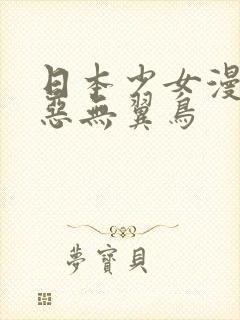 日本少女漫
惡無翼鳥
夢寶貝